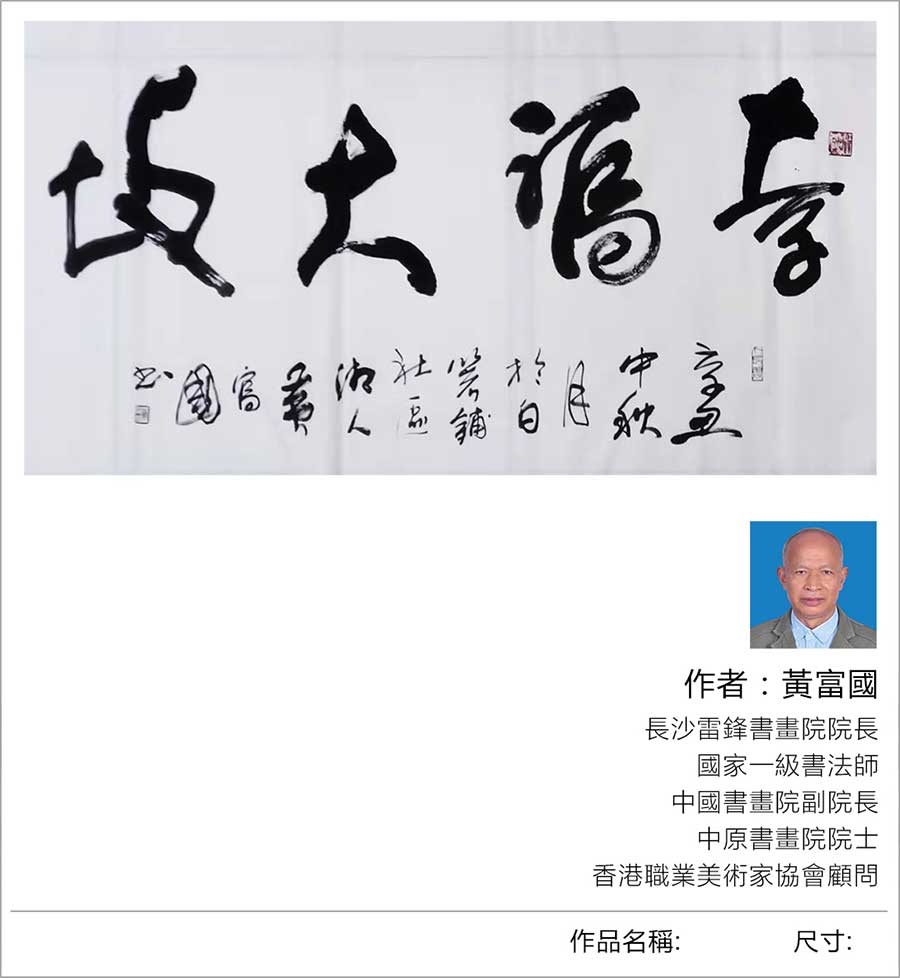 孝福大坡
辛丑
中秋
月
於白
箬鋪
社區
湘人
黃
富
國
書
作者：黃富國
長沙雷鋒書畫院院長
國家一級書法師
中國書畫院副院長
中原書畫院院士
香港職業美術家協會顧問
作品名稱: 尺寸: